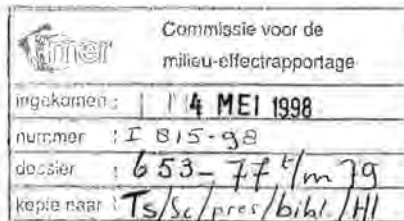 mer
Commissie voor de
milieu-effectrapportage
ingekomen : 4 MEI 1998
nummer : I 815-98
dossier : 653-77 t/m 79
kopie naar : Ts/Sc/pres/bibl./Hl